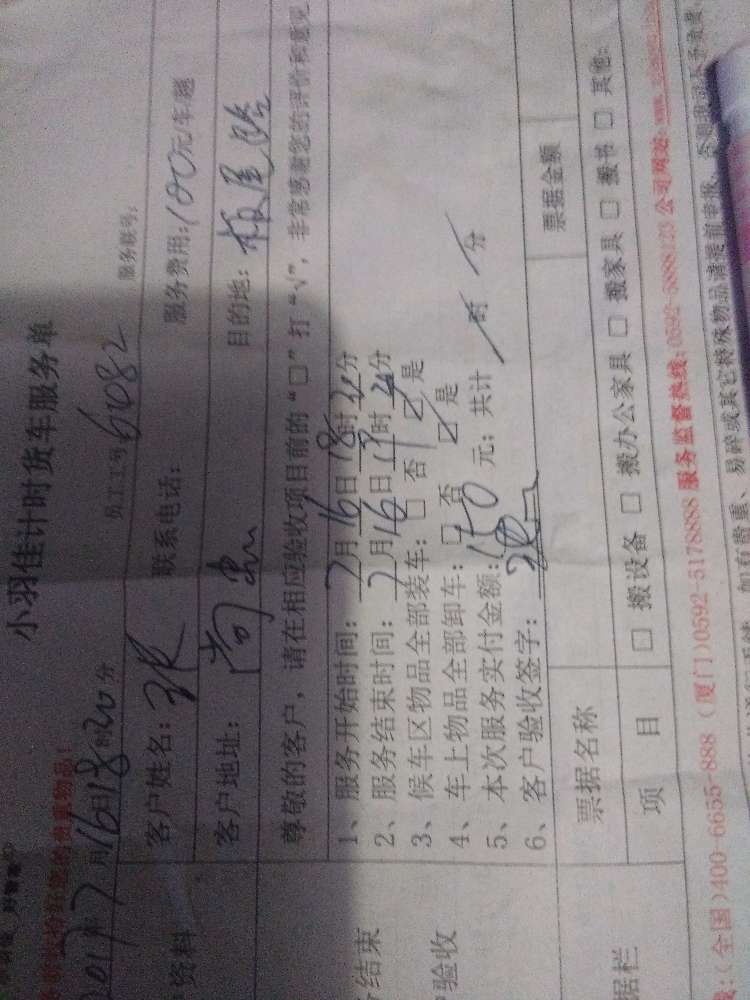 小羽佳计时货车服务单
员工工号61082 服务联号:
2017年7月16日18时20分
客户姓名: 张 联系电话: 服务费用:100元/车.趟
资料
客户地址: 目的地: 板尾路
尊敬的客户，请在相应验收项目前的“□”打“√”，非常感谢您的评价和意见
1、服务开始时间: 7月16日18时20分
2、服务结束时间: 7月16日19时20分
3、候车区物品全部装车: □ 否 ☑ 是
4、车上物品全部卸车: □ 否 ☑ 是
5、本次服务实付金额:150元; 共计 / 时 / 分
6、客户验收签字: 张
结束
验收
票据名称 票据金额
项 目 □ 搬设备 □ 搬办公家具 □ 搬家具 □ 搬书 □ 其他:
据栏
线:(全国)400-6655-888 (厦门)0592-5178888 服务监督热线:0592-5888123 公司网址:
易碎或其它特殊物品请提前申报，否则我司不予负责